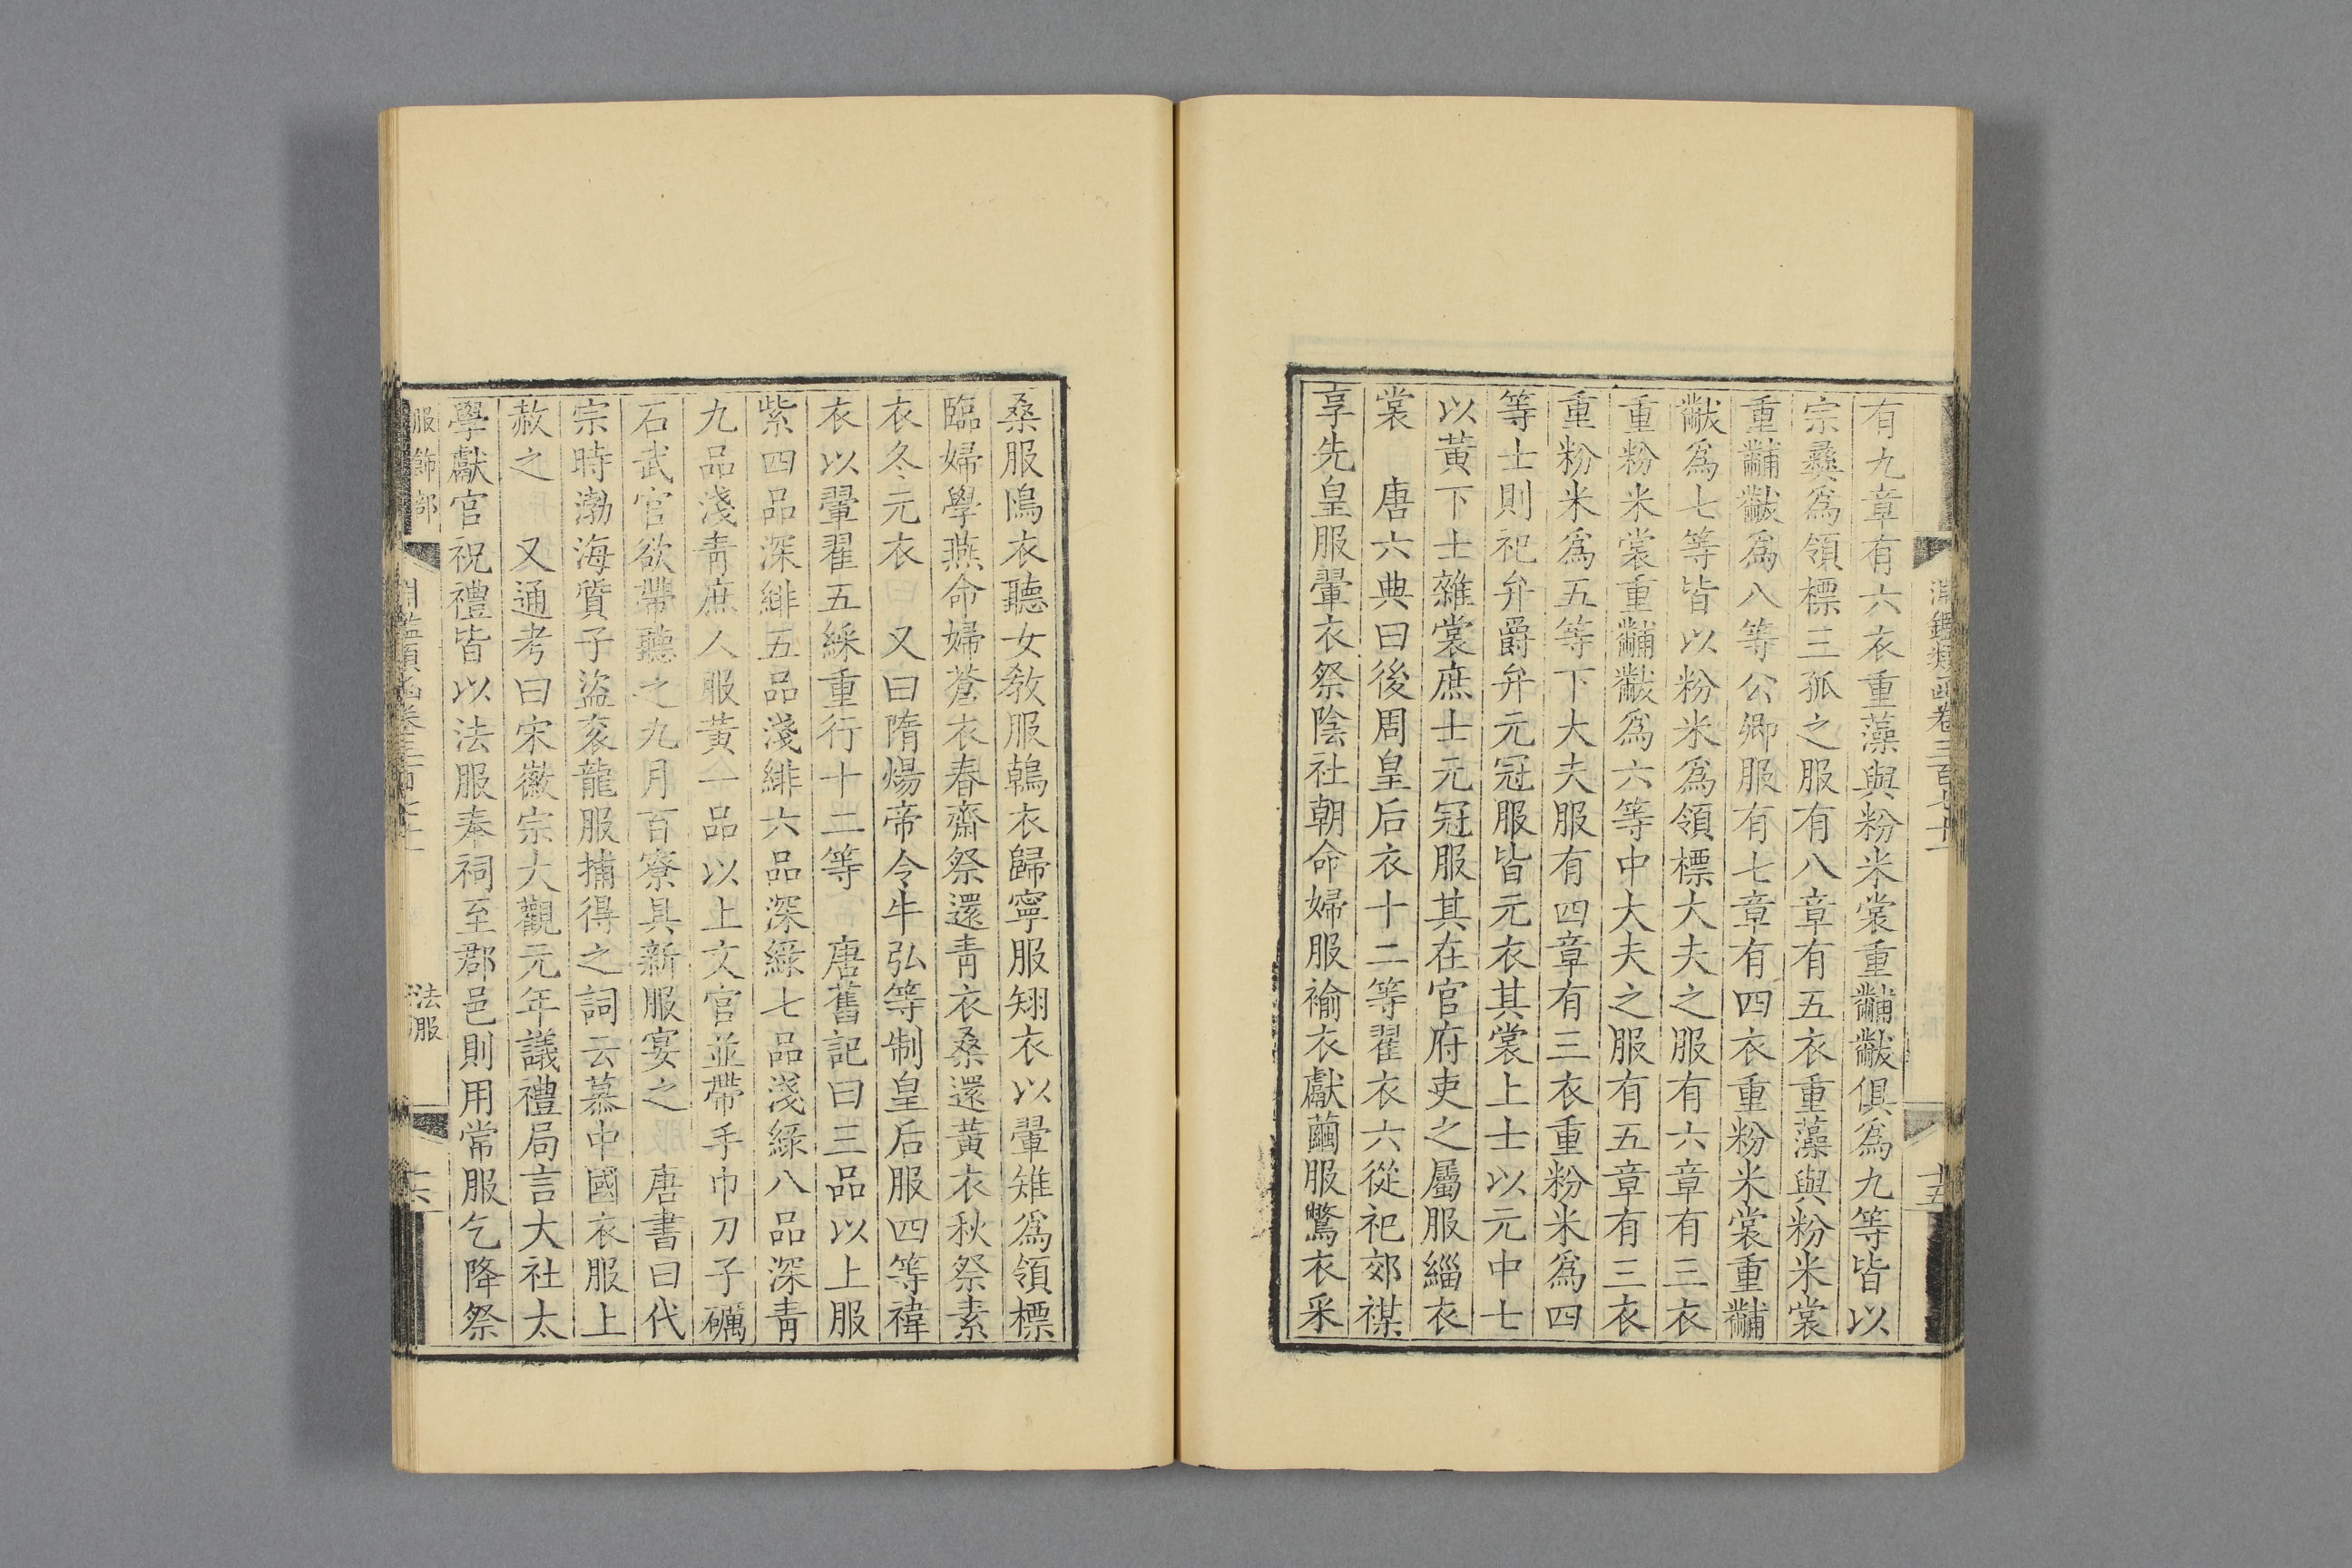 淵鑑類函卷三百七十一
十五
有九章有六衣重藻與粉米裳重黼黻俱爲九等皆以
宗彝爲領標三孤之服有八章有五衣重藻與粉米裳
重黼黻爲八等公卿服有七章有四衣重粉米裳重黼
黻爲七等皆以粉米爲領標大夫之服有六章有三衣
重粉米裳重黼黻爲六等中大夫之服有五章有三衣
重粉米爲五等下大夫服有四章有三衣重粉米爲四
等士則祀弁爵弁元冠服皆元衣其裳上士以元中士
以黃下士雜裳庶士元冠服其在官府吏之屬服緇衣
裳　唐六典曰後周皇后衣十二等翟衣六從祀郊禖
享先皇服翬衣祭陰社朝命婦服褕衣獻繭服鷩衣采
桑服鳪衣聽女敎服鵫衣歸寧服翙衣以翬雉爲領標
臨婦學燕命婦蒼衣春齋祭還靑衣桑還黃衣秋祭素
衣冬元衣　又曰隋煬帝令牛弘等制皇后服四等褘
衣以翬翟五綵重行十二等　唐舊記曰三品以上服
紫四品深緋五品淺緋六品深綠七品淺綠八品深靑
九品淺靑庶人服黃一品以上文官並帶手巾刀子礪
石武官欲帶聽之九月百寮具新服宴之　唐書曰代
宗時渤海質子盜衮龍服捕得之詞云慕中國衣服上
赦之　又通考曰宋徽宗大觀元年議禮局言大社太
學獻官祝禮皆以法服奉祠至郡邑則用常服乞降祭
服飾部
法服